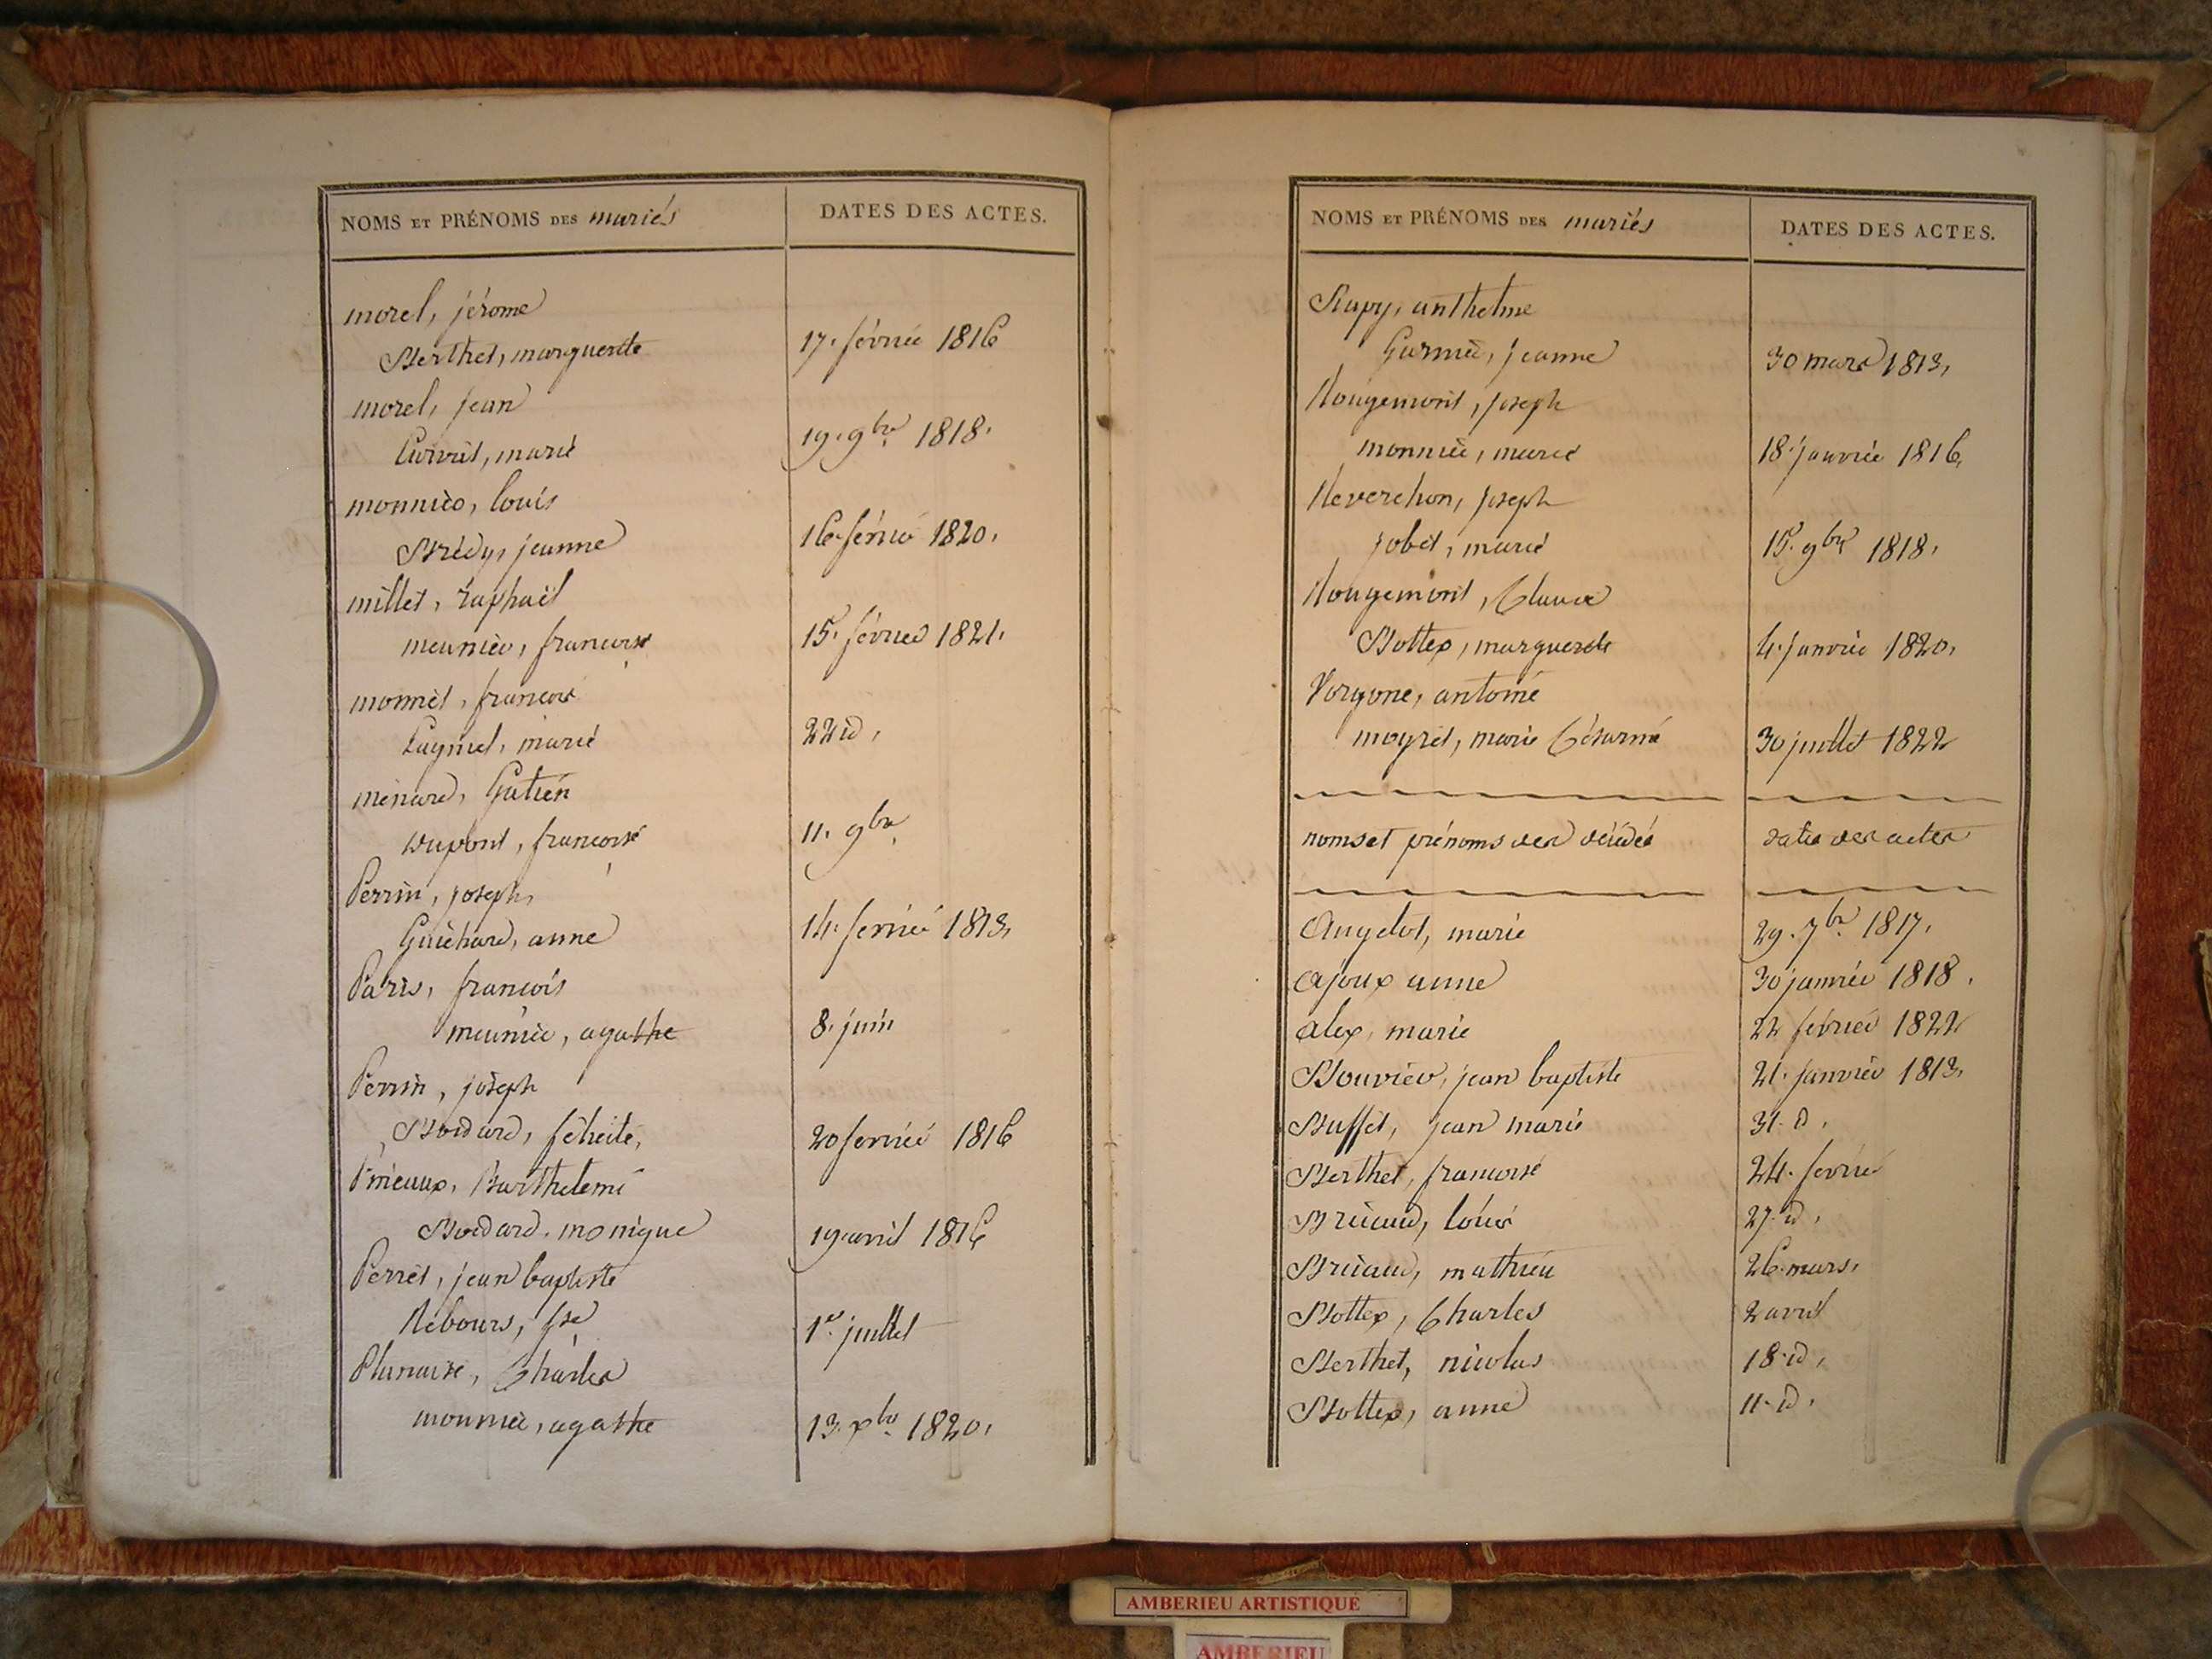 NOMS ET PRÉNOMS DES mariés
DATES DES ACTES.
morel, jérome
Berthet, marguerite
17. février 1816
morel, jean
marie
19. 9bre 1818.
monnier, louis
Brédy, jeanne
16 février 1820.
millet, raphaël
meunier, francoise
15. février 1821.
monnet, francois
marie
22 id.
menard, Gatien
dupont, francoise
11. 9bre
Perrin, joseph,
Guichard, anne
14. février 1813.
Paris, francois
meunier, agathe
8. juin
Perrin, joseph
Boidard, félicité,
20 février 1816
Barthelemi
Boidard. monique
19 avril 1816
Perret, jean baptiste
Rebours, fse
1er juillet
Plunaise, Charles
monnier, agathe
13. xbre 1820.
NOMS ET PRÉNOMS DES mariés
DATES DES ACTES.
Rapy, anthelme
Garnier, jeanne
30 mars 1813.
Rougemont, joseph
monnier, marie
18. janvier 1816.
Reverchon, joseph
jobet, marie
15. 9bre 1818.
Rougemont, Claude
Bottex, marguerite
4. janvier 1820.
Vorgone, antoine
moyret, marie Césarine
30 juillet 1822
noms et prénoms des décédés
dates des actes
Angelot, marie
29. 7bre 1817.
ajoux anne
30 janvier 1818.
alex, marie
22 février 1822
Bouvier, jean baptiste
21. janvier 1813.
Buffet, jean marie
31. id.
Berthet, francoise
24. février
Bruaud, louis
27. id.
Bruaud, mathieu
26. mars.
Bottex, Charles
2 avril
Berthet, nicolas
18. id.
Bottex, anne
11. id.
AMBERIEU ARTISTIQUE
AMBERIEU